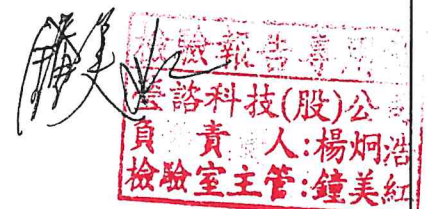 鐘美紅
檢驗報告專用
瑩諮科技(股)公
負責人:楊炯浩
檢驗室主管:鐘美紅